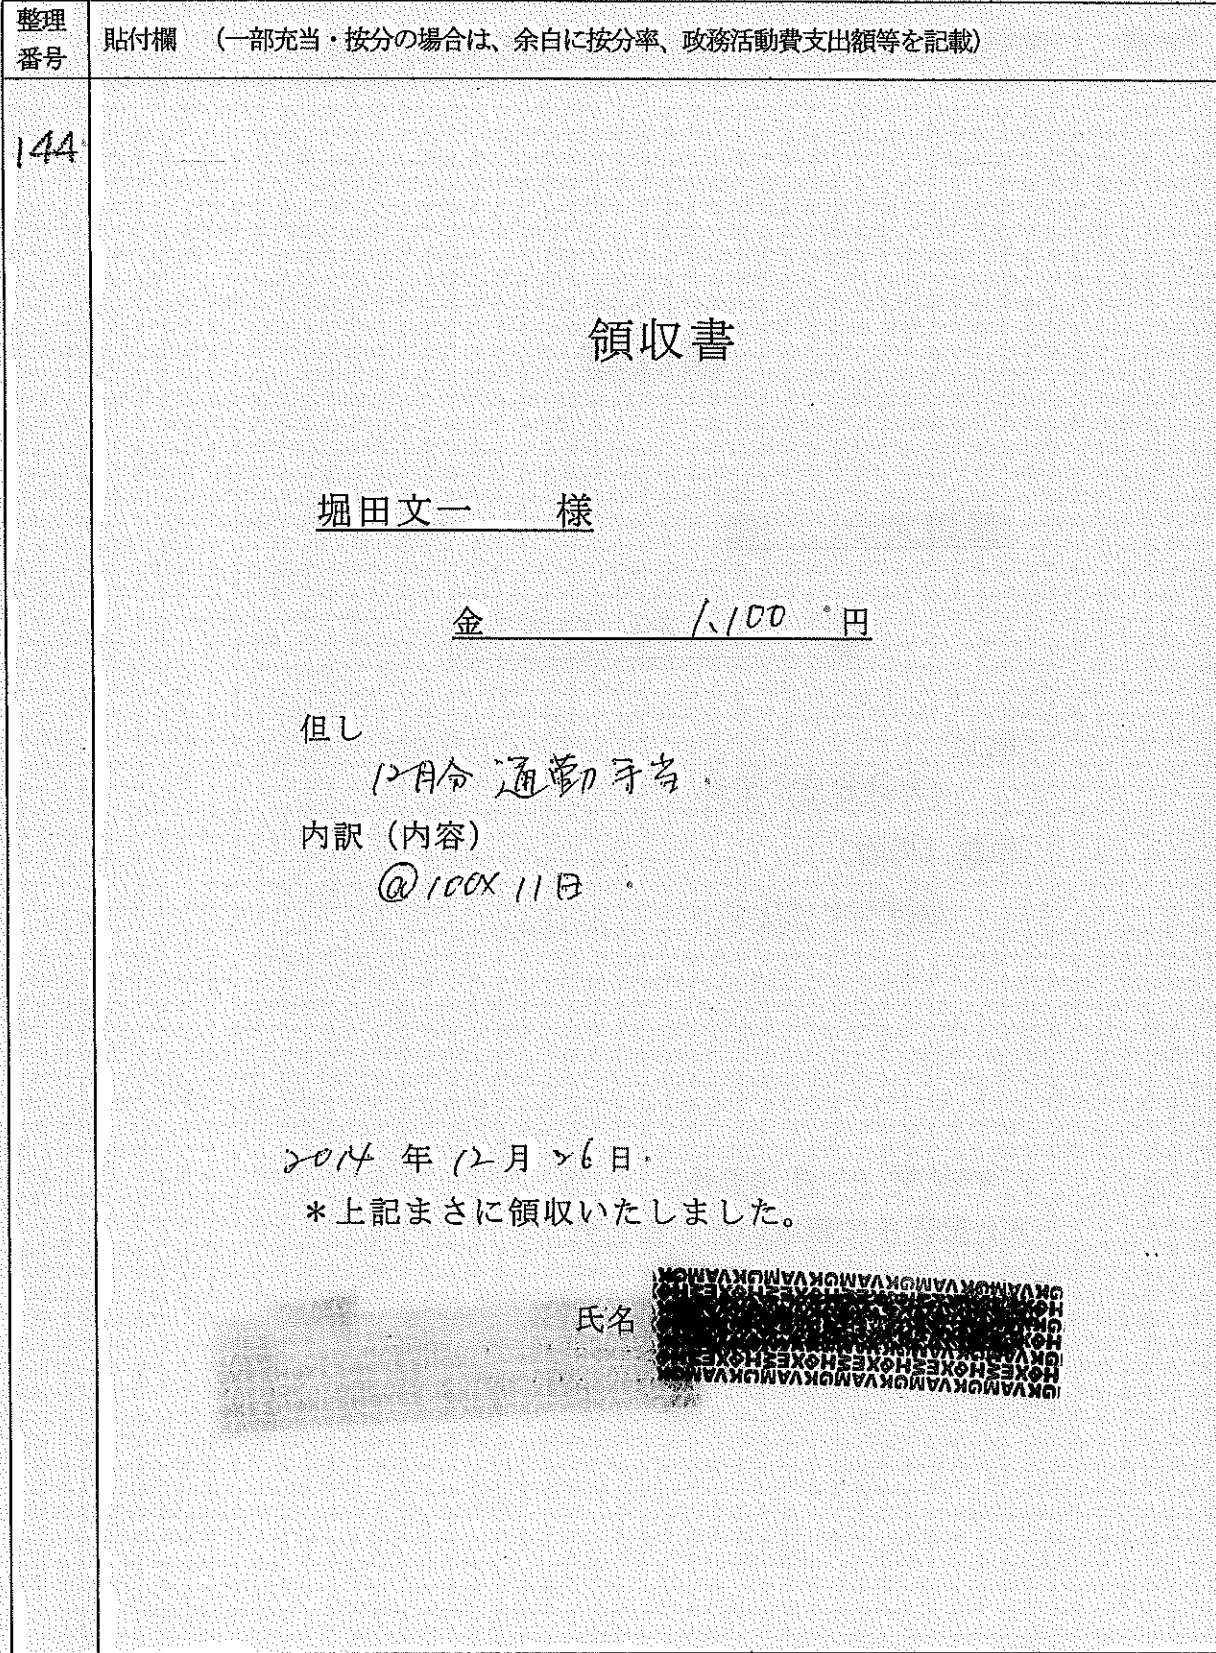 整理
番号
貼付欄 （一部充当・按分の場合は、余白に按分率、政務活動費支出額等を記載）
144
領収書
堀田文一 様
金 1,100 円
但し
12月分 通勤手当
内訳（内容）
@100X 11日
2014 年 12 月 26 日
＊上記まさに領収いたしました。
氏名